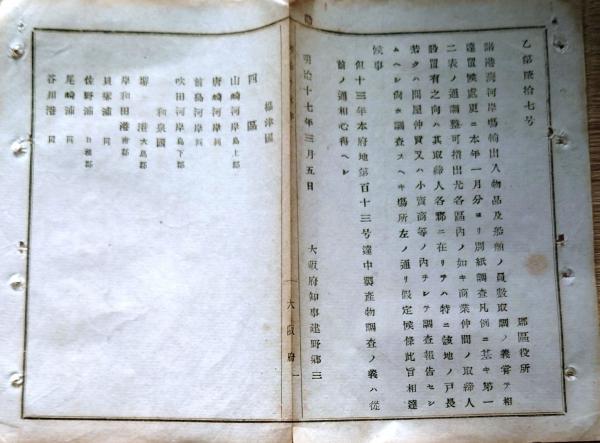 乙第陸拾七号
郡區役所
諸港海河岸塲輸出入物品及船舶ノ員数取調ノ義甞テ相
達置候處更ニ本年一月分ヨリ別紙調査凡例ニ基キ第一
二表ノ通調整可指出尤各區内ノ如キ商業仲間ノ取締人
設置有之向ハ其取締人各郡ニ在リテハ特ニ該地ノ戸長
若クハ問屋仲買又ハ小賣商等ノ内チシテ調査報告セシ
ムヘシ尚ホ調査スヘキ塲所左ノ通リ假定候條此旨相達
候事
但十三年本府地第百十三号達中興産物調査ノ義ハ従
前ノ通相心得ヘシ
明治十七年三月五日
大阪府知事建野郷三
大阪府
攝津國
四區
山崎河岸島上郡
唐崎河岸同
前島河岸同
吹田河岸島下郡
和泉國
堺港大鳥郡
岸和田港南郡
貝塚浦同
佐野浦日根郡
尾崎浦同
谷川港同